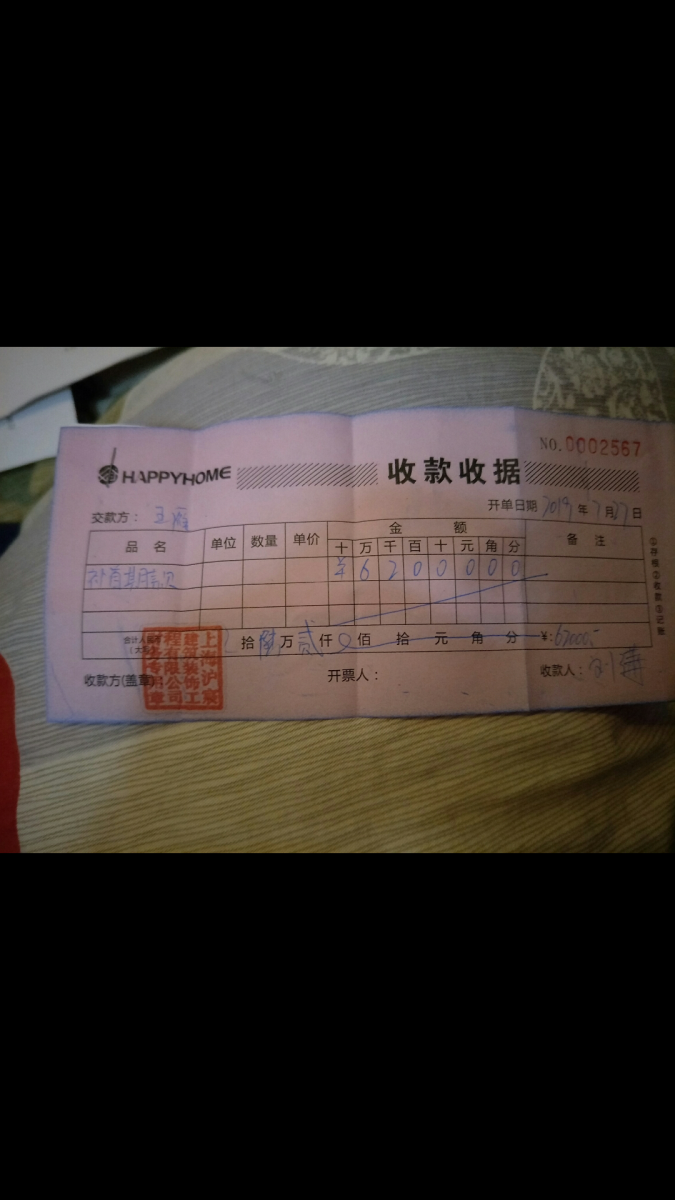 NO.0002567
HAPPYHOME 收款收据
开单日期 2019年7月27日
交款方：王
品名 单位 数量 单价 金额 备注
十 万 千 百 十 元 角 分
补首期款 ¥ 6 2 0 0 0 0 0
①存根②收款③记账
拾 陆万 贰仟 佰 拾 元 角 分 ¥:62000-
收款方(盖章)
开票人：
收款人：
上海沪
建筑装饰工
程有限公司